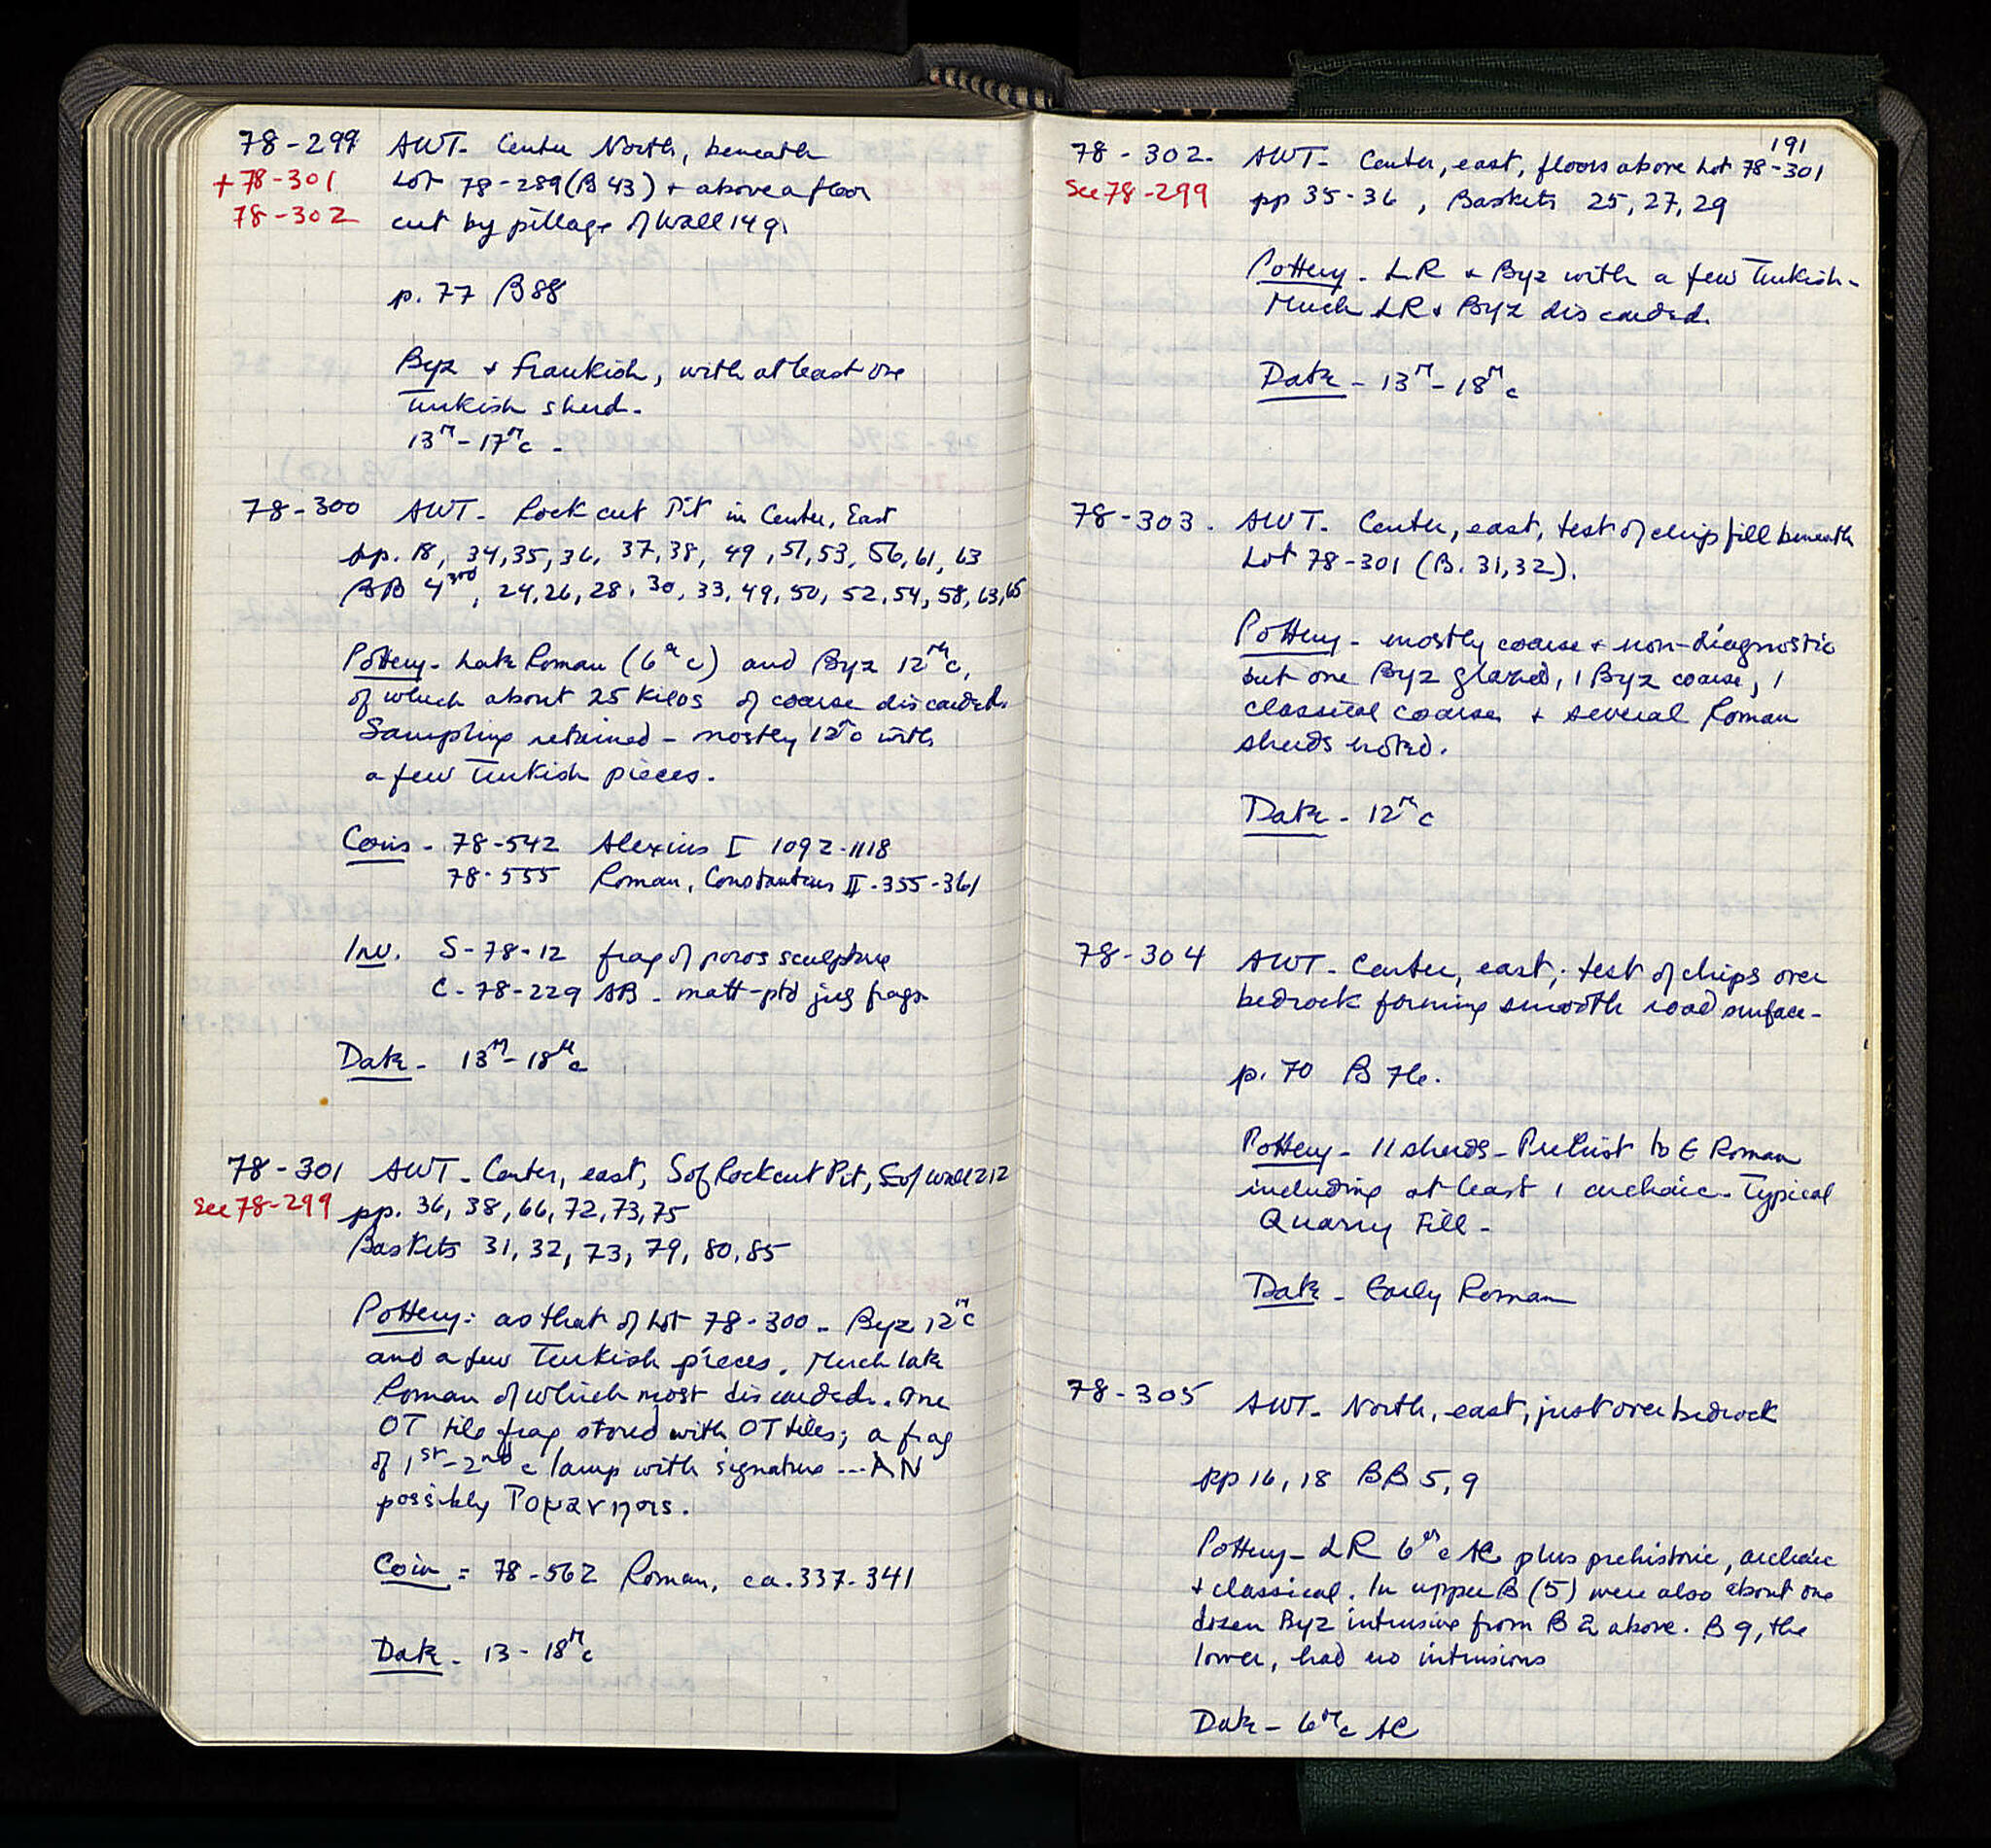 78-299 AWT- Center North, beneath
+78-301 Lot 78-289 (B 43) + above a floor
78-302 cut by pillage of Wall 149.
p. 77 B 88
Byz + Frankish, with at least one
Turkish sherd.
13th-17th c.
78-300 AWT- Rock cut Pit in Center, East
pp. 18, 34, 35, 36, 37, 38, 49, 51, 53, 56, 61, 63
BB 4, 24, 26, 28, 30, 33, 49, 50, 52, 54, 58, 63, 65
Pottery- Late Roman (6th c) and Byz 12th c,
of which about 25 kilos of coarse discarded.
Sampling retained - mostly 12th c with
a few Turkish pieces.
Coins - 78-542 Alexius I 1092-1118
78-555 Roman, Constantius II - 355-361
Inv. S-78-12 frag of poros sculpture
C-78-229 AB - matt-ptd jug frags
Date - 13th-18th c
78-301 AWT- Center, east, S of Rockcut Pit, S of Wall 212
See 78-299 pp. 36, 38, 66, 72, 73, 75
Baskets 31, 32, 73, 79, 80, 85
Pottery: as that of Lot 78-300 - Byz 12th c
and a few Turkish pieces. Much late
Roman of which most discarded. One
OT tile frag stored with OT tiles; a frag
of 1st-2nd c lamp with signature ---AN
possibly
Coin = 78-562 Roman, ca. 337-341
Date - 13-18th c
191
78-302. AWT- Center, east, floors above Lot 78-301
See 78-299 pp 35-36, Baskets 25, 27, 29
Pottery - LR + Byz with a few Turkish-
Much LR + Byz discarded.
Date - 13th-18th c
78-303. AWT- Center, east, test of chip fill beneath
Lot 78-301 (B. 31, 32).
Pottery - mostly coarse + non-diagnostic
but one Byz glazed, 1 Byz coarse, 1
classical coarse + several Roman
sherds noted.
Date - 12th c
78-304 AWT- Center, east; test of chips over
bedrock forming smooth road surface-
p. 70 B 76.
Pottery - 11 sherds - Prehist to E Roman
including at least 1 archaic. Typical
Quarry Fill -
Date - Early Roman
78-305 AWT- North, east, just over bedrock
pp 16, 18 BB 5, 9
Pottery - LR 6th c AC plus prehistoric, archaic
+ classical. In upper B (5) were also about one
dozen Byz intrusive from B 2 above. B 9, the
lower, had no intrusions
Date - 6th c AC